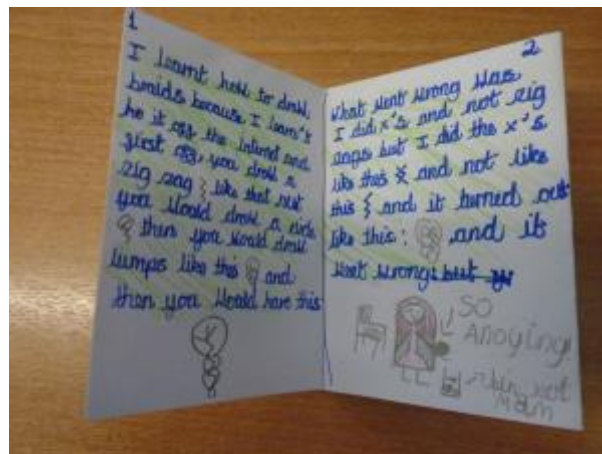 1
I learnt how to draw
braids because I learn't
he it off the internet and
first off, you draw a
zig zag like that next
you would draw a circle
then you would draw
lumps like this and
then you would have this
2
What went wrong was
I did x's and not zig
zags but I did the x's
like this and not like
this and it turned out
like this: and it
went wrong but
SO
Anoying!
bin not